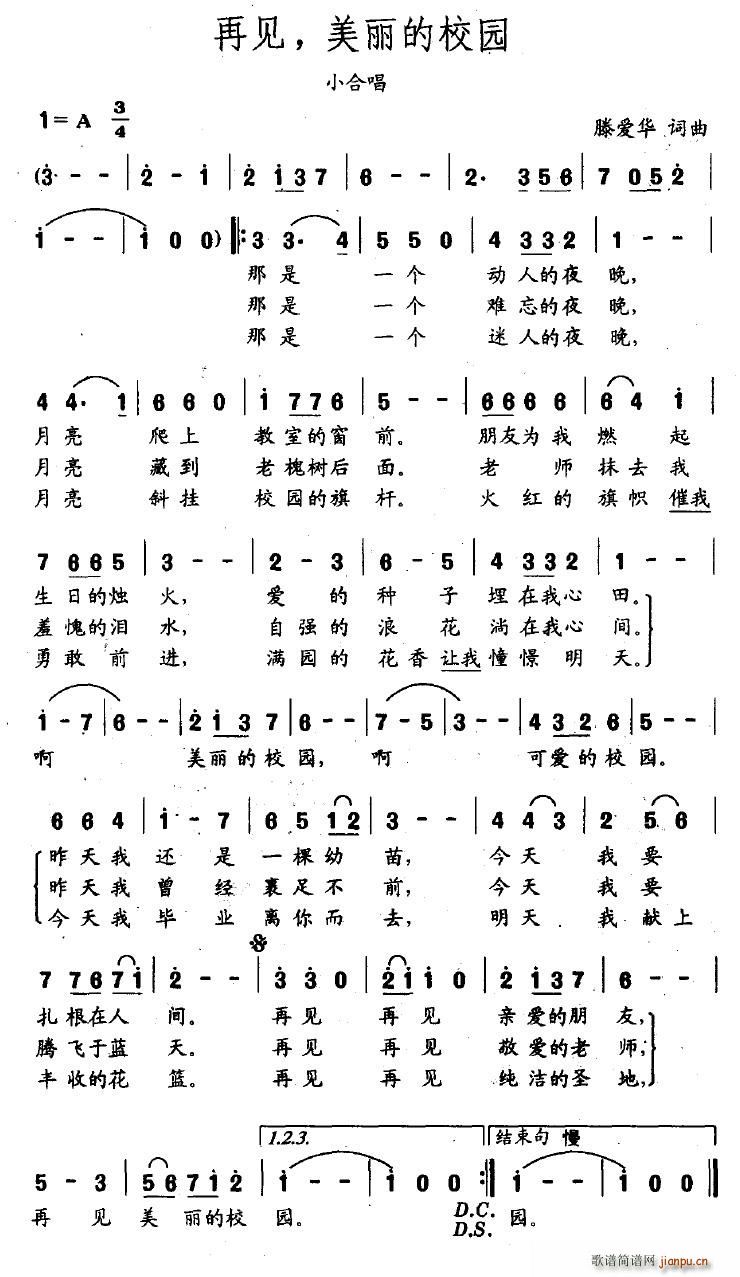 再见，美丽的校园
小合唱
1=A 3/4
滕爱华 词曲
(3̇ - - | 2̇ - i | 2̇ i 3̇ 7 | 6 - - | 2· 3 5 6 | 7 0 5 2̇ |
i - - | i 0 0) |: 3 3· 4 | 5 5 0 | 4 3 3 2 | 1 - - |
那是 一个 动人的夜晚，
那是 一个 难忘的夜晚，
那是 一个 迷人的夜晚，
4 4· 1 | 6 6 0 | i 7 7 6 | 5 - - | 6 6 6 6 | 6 4 i |
月亮 爬上 教室的窗前。 朋友为我燃起
月亮 藏到 老槐树后面。 老师抹去我
月亮 斜挂 校园的旗杆。 火红的旗帜催我
7 6 6 5 | 3 - - | 2 - 3 | 6 - 5 | 4 3 3 2 | 1 - - |
生日的烛火， 爱的种子埋在我心田。
羞愧的泪水， 自强的浪花淌在我心间。
勇敢前进， 满园的花香让我憧憬明天。
i - 7 | 6 - - | 2̇ i 3̇ 7 | 6 - - | 7 - 5 | 3 - - | 4 3 2 6 | 5 - - |
啊 美丽的校园， 啊 可爱的校园。
6 6 4 | i - 7 | 6 5 1 2 | 3 - - | 4 4 3 | 2 5 6 |
昨天我还是一棵幼苗， 今天我要
昨天我曾经裹足不前， 今天我要
今天我毕业离你而去， 明天我献上
7 7 6 7 i | 2̇ - - | 3̇ 3̇ 0 | 2̇ i i 0 | 2̇ i 3̇ 7 | 6 - - |
扎根在人间。 再见 再见 亲爱的朋友，
腾飞于蓝天。 再见 再见 敬爱的老师，
丰收的花篮。 再见 再见 纯洁的圣地，
1.2.3. 结束句 慢
5 - 3 | 5 6 7 i 2̇ | i - - | i 0 0 :| i - - | i 0 0 |
再见美丽的校园。 D.C. 园。
D.S.
歌谱简谱网
jianpu.cn